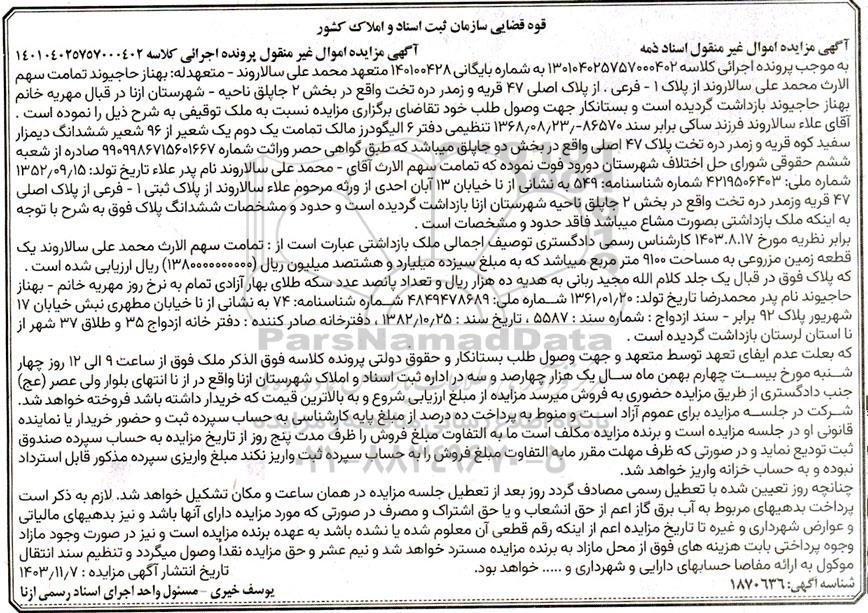 قوه قضایی سازمان ثبت اسناد و املاک کشور
آگهی مزایده اموال غیر منقول اسناد ذمه
آگهی مزایده اموال غیر منقول پرونده اجرائی کلاسه ۱۴۰۱۰۴۰۲۵۷۵۷۰۰۰۴۰۲
به موجب پرونده اجرائی کلاسه ۱۳۰۱۰۴۰۲۵۷۵۷۰۰۰۴۰۲ به شماره بایگانی ۱۴۰۱۰۰۴۲۸ متعهد محمد علی سالاروند - متعهدله: بهناز حاجیوند تمامت سهم
الارث محمد علی سالاروند از پلاک ۱ - فرعی . از پلاک اصلی ۴۷ قریه و زمدر دره تخت واقع در بخش ۲ جاپلق ناحیه - شهرستان ازنا در قبال مهریه خانم
بهناز حاجیوند بازداشت گردیده است و بستانکار جهت وصول طلب خود تقاضای برگزاری مزایده نسبت به ملک توقیفی به شرح ذیل را نموده است .
آقای علاء سالاروند فرزند ساکی برابر سند ۸۶۵۷۰-۱۳۶۸,۰۸,۲۳ تنظیمی دفتر ۶ الیگودرز مالک تمامت یک دوم یک شعیر از ۹۶ شعیر ششدانگ دیمزار
سفید کوه قریه و زمدر دره تخت پلاک ۴۷ اصلی واقع در بخش دو جاپلق میباشد که طبق گواهی حصر وراثت شماره ۹۹۰۹۹۸۶۷۱۵۶۰۱۶۶۷ صادره از شعبه
ششم حقوقی شورای حل اختلاف شهرستان دورود فوت نموده که تمامت سهم الارث آقای - محمد علی سالاروند نام پدر علاء تاریخ تولد: ۱۳۵۲,۰۹,۱۵
شماره ملی: ۴۲۱۹۵۰۶۴۰۳ شماره شناسنامه: ۵۴۹ به نشانی از نا خیابان ۱۳ آبان احدی از ورثه مرحوم علاء سالاروند از پلاک ثبتی ۱ - فرعی از پلاک اصلی
۴۷ قریه وزمدر دره تخت واقع در بخش ۲ جاپلق ناحیه شهرستان ازنا بازداشت گردیده است و حدود و مشخصات ششدانگ پلاک فوق به شرح با توجه
به اینکه ملک بازداشتی بصورت مشاع میباشد فاقد حدود و مشخصات است .
برابر نظریه مورخ ۱۴۰۳.۸.۱۷ کارشناس رسمی دادگستری توصیف اجمالی ملک بازداشتی عبارت است از : تمامت سهم الارث محمد علی سالاروند یک
قطعه زمین مزروعی به مساحت ۹۱۰۰ متر مربع میباشد که به مبلغ سیزده میلیارد و هشتصد میلیون ریال (۱۳۸۰۰۰۰۰۰۰۰) ریال ارزیابی شده است .
که پلاک فوق در قبال یک جلد کلام الله مجید ربانی به هدیه ده هزار ریال و تعداد پانصد عدد سکه طلای بهار آزادی تمام به نرخ روز مهریه خانم - بهناز
حاجیوند نام پدر محمدرضا تاریخ تولد: ۱۳۶۱,۰۱,۲۰ شماره ملی: ۴۸۴۹۴۷۸۶۸۹ شماره شناسنامه: ۷۴ به نشانی از نا خیابان مطهری نبش خیابان ۱۷
شهریور پلاک ۹۲ برابر - سند ازدواج : شماره سند : ۵۵۸۷ ، تاریخ سند : ۱۳۸۲,۱۰,۲۵ ، دفترخانه صادر کننده : دفتر خانه ازدواج ۳۵ و طلاق ۳۷ شهر از
نا استان لرستان بازداشت گردیده است .
که بعلت عدم ایفای تعهد توسط متعهد و جهت وصول طلب بستانکار و حقوق دولتی پرونده کلاسه فوق الذکر ملک فوق از ساعت ۹ الی ۱۲ روز چهار
شنبه مورخ بیست چهارم بهمن ماه سال یک هزار چهارصد و سه در اداره ثبت اسناد و املاک شهرستان ازنا واقع در از نا انتهای بلوار ولی عصر (عج)
جنب دادگستری از طریق مزایده حضوری به فروش میرسد مزایده از مبلغ ارزیابی شروع و به بالاترین قیمت که خریدار داشته باشد فروخته خواهد شد.
شرکت در جلسه مزایده برای عموم آزاد است و منوط به پرداخت ده درصد از مبلغ پایه کارشناسی به حساب سپرده ثبت و حضور خریدار یا نماینده
قانونی او در جلسه مزایده است و برنده مزایده مکلف است ما به التفاوت مبلغ فروش را ظرف مدت پنج روز از تاریخ مزایده به حساب سپرده صندوق
ثبت تودیع نماید و در صورتی که ظرف مهلت مقرر مابه التفاوت مبلغ فروش را به حساب سپرده ثبت واریز نکند مبلغ واریزی سپرده مذکور قابل استرداد
نبوده و به حساب خزانه واریز خواهد شد.
چنانچه روز تعیین شده با تعطیل رسمی مصادف گردد روز بعد از تعطیل جلسه مزایده در همان ساعت و مکان تشکیل خواهد شد. لازم به ذکر است
پرداخت بدهیهای مربوط به آب برق گاز اعم از حق انشعاب و یا حق اشتراک و مصرف در صورتی که مورد مزایده دارای آنها باشد و نیز بدهیهای مالیاتی
و عوارض شهرداری و غیره تا تاریخ مزایده اعم از اینکه رقم قطعی آن معلوم شده یا نشده باشد به عهده برنده مزایده است و نیز در صورت وجود مازاد
وجوه پرداختی بابت هزینه های فوق از محل مازاد به برنده مزایده مسترد خواهد شد و نیم عشر و حق مزایده نقدا وصول میگردد و تنظیم سند انتقال
موکول به ارائه مفاصا حسابهای دارایی و شهرداری و ..... خواهد بود.
تاریخ انتشار آگهی مزایده : ۱۴۰۳,۱۱,۷
شناسه آگهی: ۱۸۷۰۶۳۶
یوسف خیری - مسئول واحد اجرای اسناد رسمی ازنا
ParsNamadData
۰۲۱-۸۸۳۴۹۶۷۰-۵